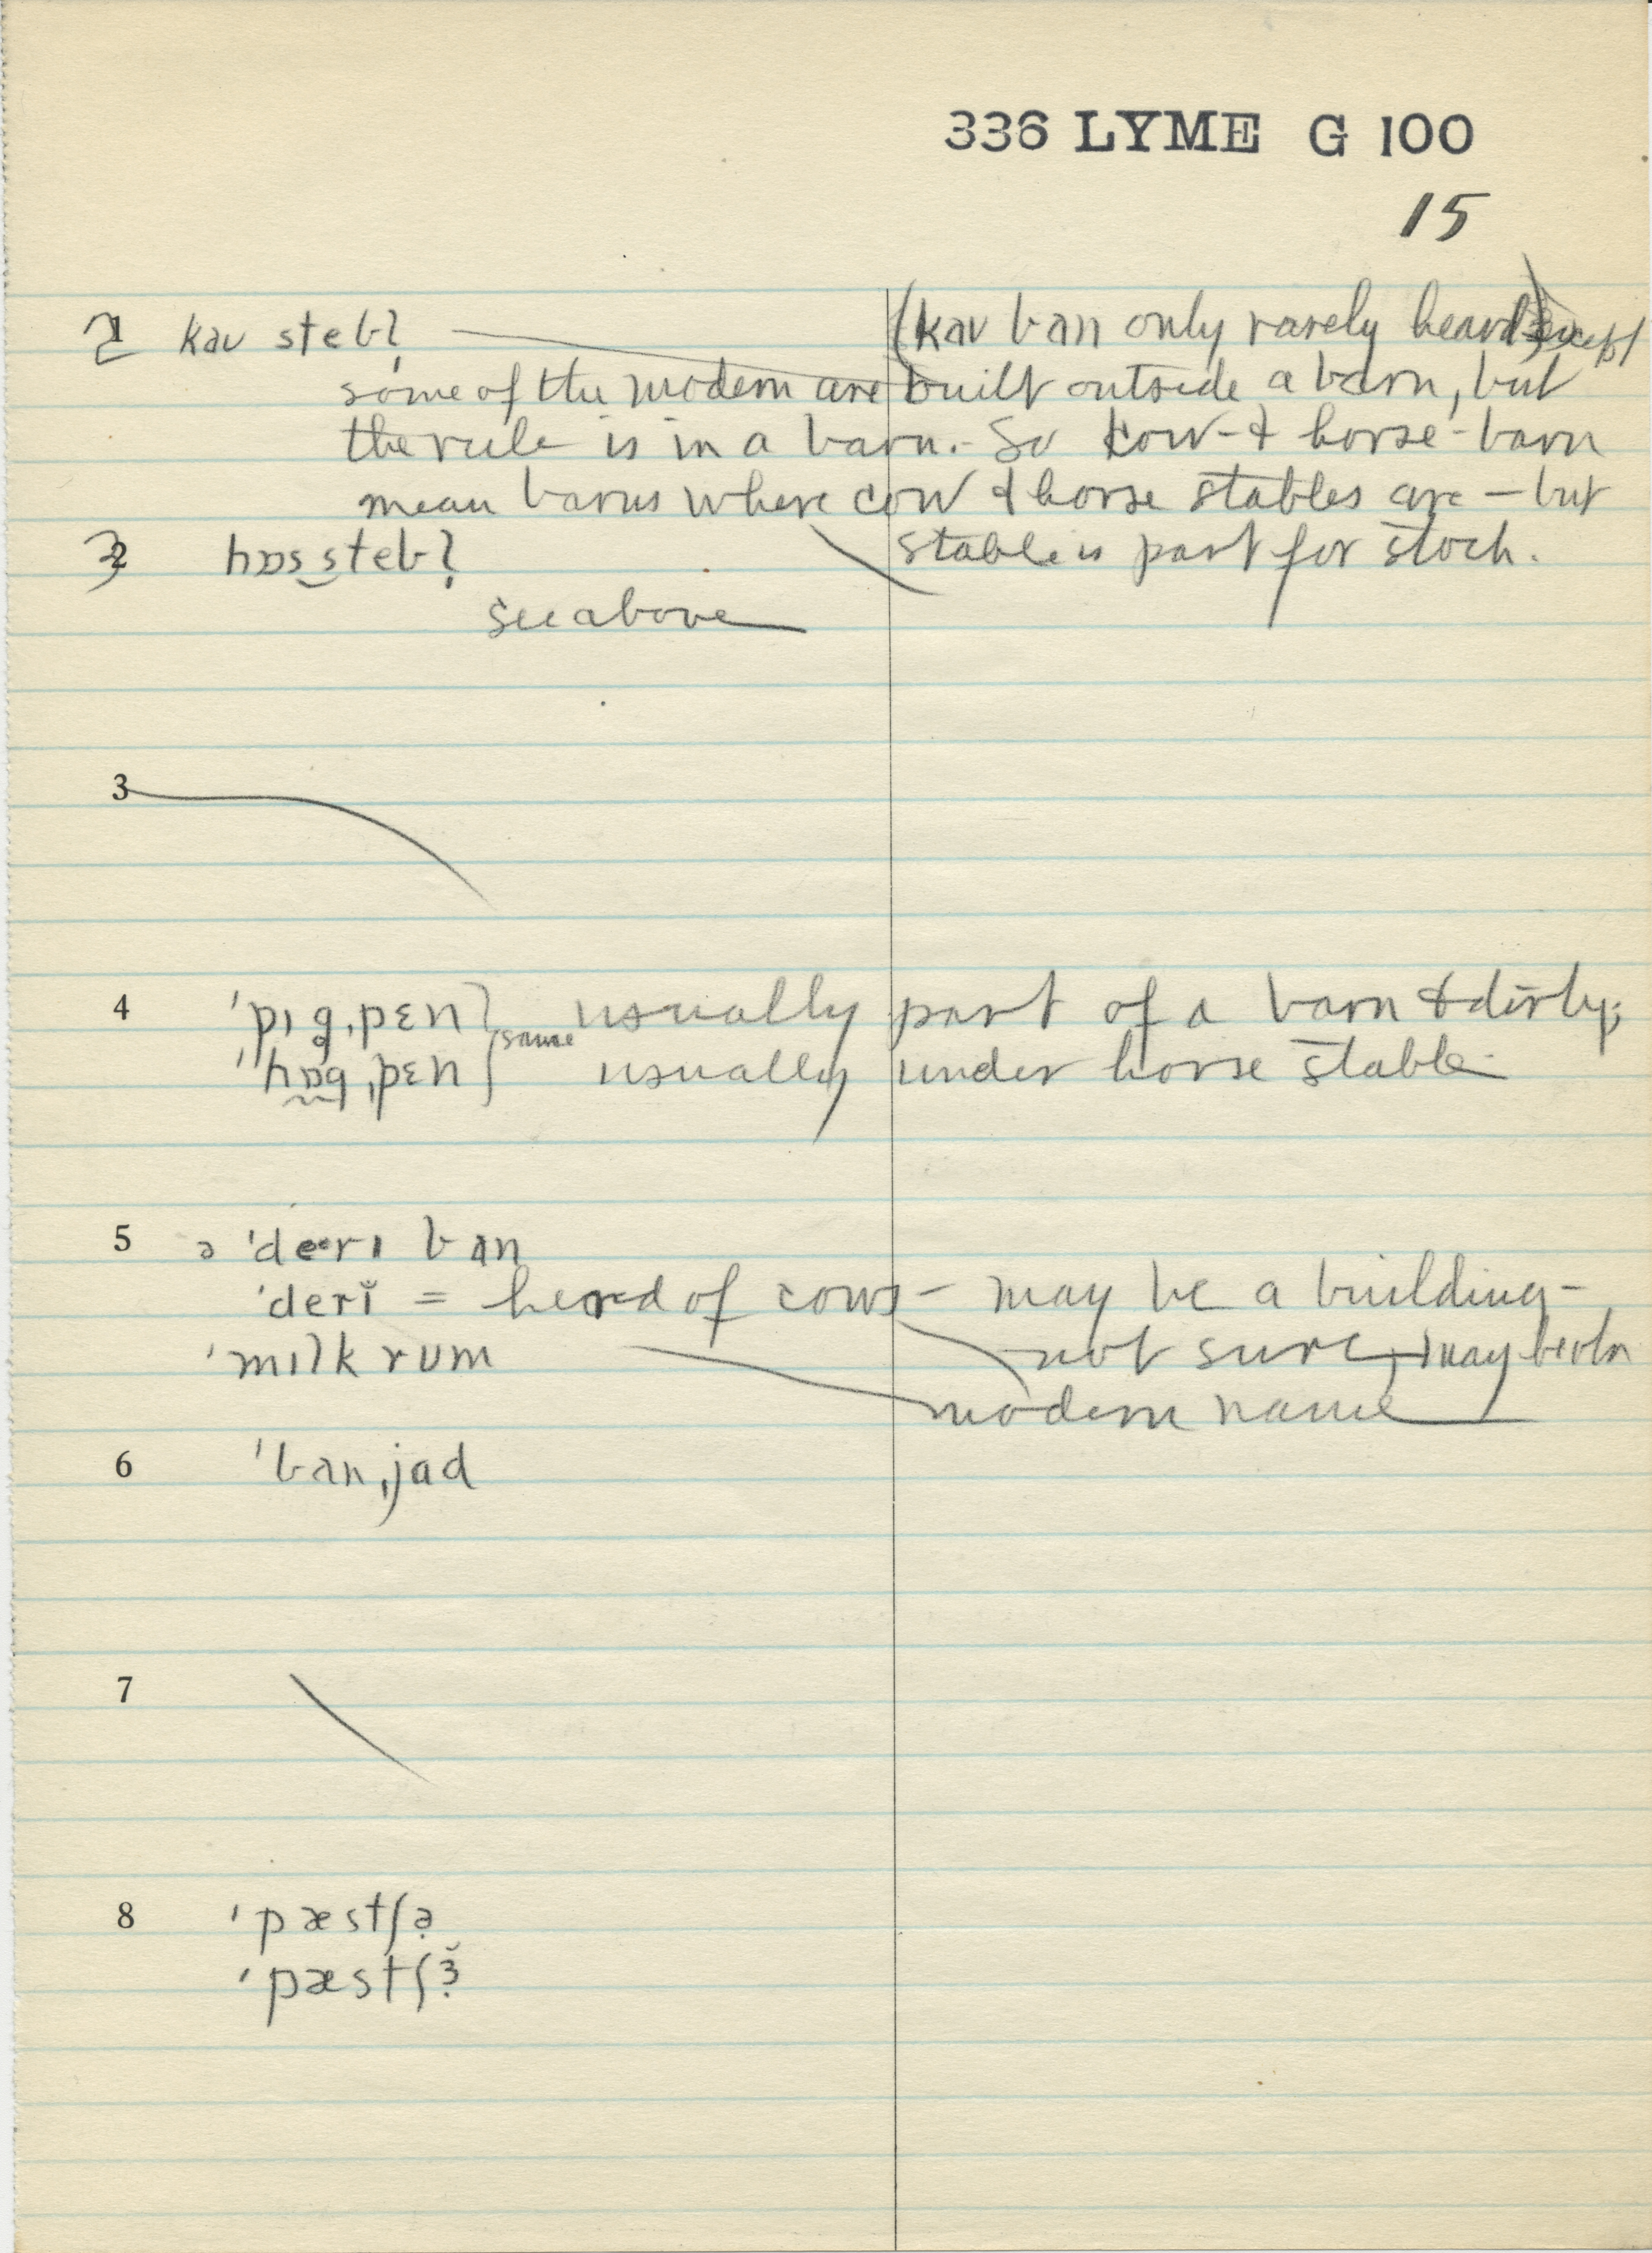 336 LYME G 100
15
2 kaʊ stebl̩ (kaʊ ban only rarely heard) except
some of the modern are built outside a barn, but
the rule is in a barn. - So cow- & horse-barn
mean barns where cow & horse stables are — but
stable is part for stock.
2 hɒs‿stebl̩
see above
3
4 ˈpɪgˌpɛn } same usually part of a barn & dirty;
ˈhɒgˌpɛn usually under horse stable
5 ə ˈdeˑrɪ ban
ˈderĭ = herd of cows — may be a building —
not sure, may be
ˈmɪlk rum
modern name
6 ˈbanˌjad
7
8 ˈpæstʃə
ˈpæstʃɜ̆